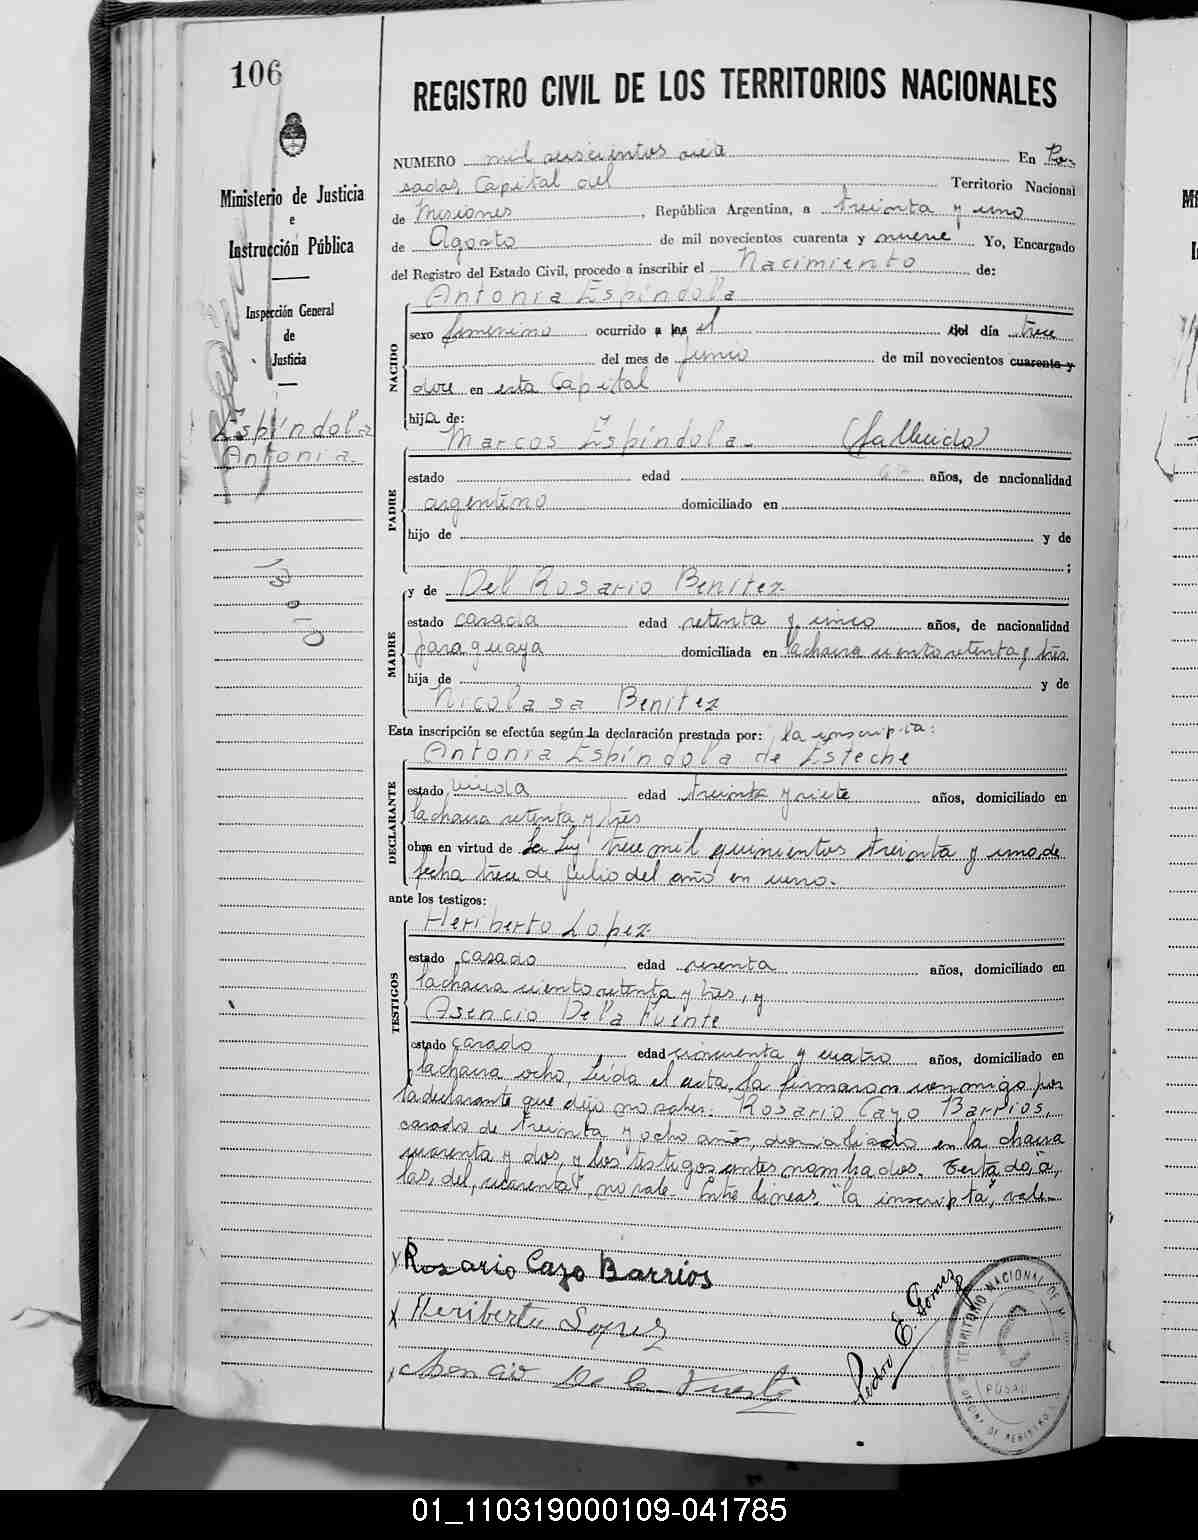 106
REGISTRO CIVIL DE LOS TERRITORIOS NACIONALES
Ministerio de Justicia
e
Instrucción Pública
Inspección General
de
Justicia
Espíndola
Antonia.
NUMERO mil seiscientos En Po-
sadas, Capital del Territorio Nacional
de Misiones, República Argentina, a treinta y uno
de Agosto de mil novecientos cuarenta y nueve Yo, Encargado
del Registro del Estado Civil, procedo a inscribir el Nacimiento de:
Antonia Espíndola
NACIDO
sexo femenino ocurrido a las el del día trece
del mes de junio de mil novecientos cuarenta y
doce en esta Capital
hija de:
Marcos Espíndola. (fallecido)
PADRE
estado edad años, de nacionalidad
argentino domiciliado en
hijo de y de
;
y de Del Rosario Benitez
MADRE
estado casada edad setenta y cinco años, de nacionalidad
paraguaya domiciliada en la chacra ciento setenta y tres
hija de y de
Nicolasa Benitez
Esta inscripción se efectúa según la declaración prestada por: la inscripta:
Antonia Espíndola de Esteche
DECLARANTE
estado viuda edad treinta y siete años, domiciliado en
la chacra setenta y tres
obra en virtud de La Ley trece mil quinientos treinta y uno, de
fecha trece de julio del año en curso.
ante los testigos:
Heriberto Lopez
TESTIGOS
estado casado edad sesenta años, domiciliado en
la chacra ciento setenta y tres, y
Asencio De la Fuente
estado casado edad cincuenta y cuatro años, domiciliado en
la chacra ocho, leída el acta, la firmaron conmigo por
la declarante que dijo no saber: Rosario Cazo Barrios,
casado de treinta y ocho años, domiciliado en la chacra
cuarenta y dos, y los testigos antes nombrados. Testado, "a,
las, del, cuarenta", no vale. Entre líneas, "la inscripta", vale.
Rosario Cazo Barrios
Heriberto Lopez
Asencio De la Fuente
Pedro E. Gomez
TERRITORIO NACIONAL DE M
POSAD
OFICINA DE REGISTRO
01_110319000109-041785